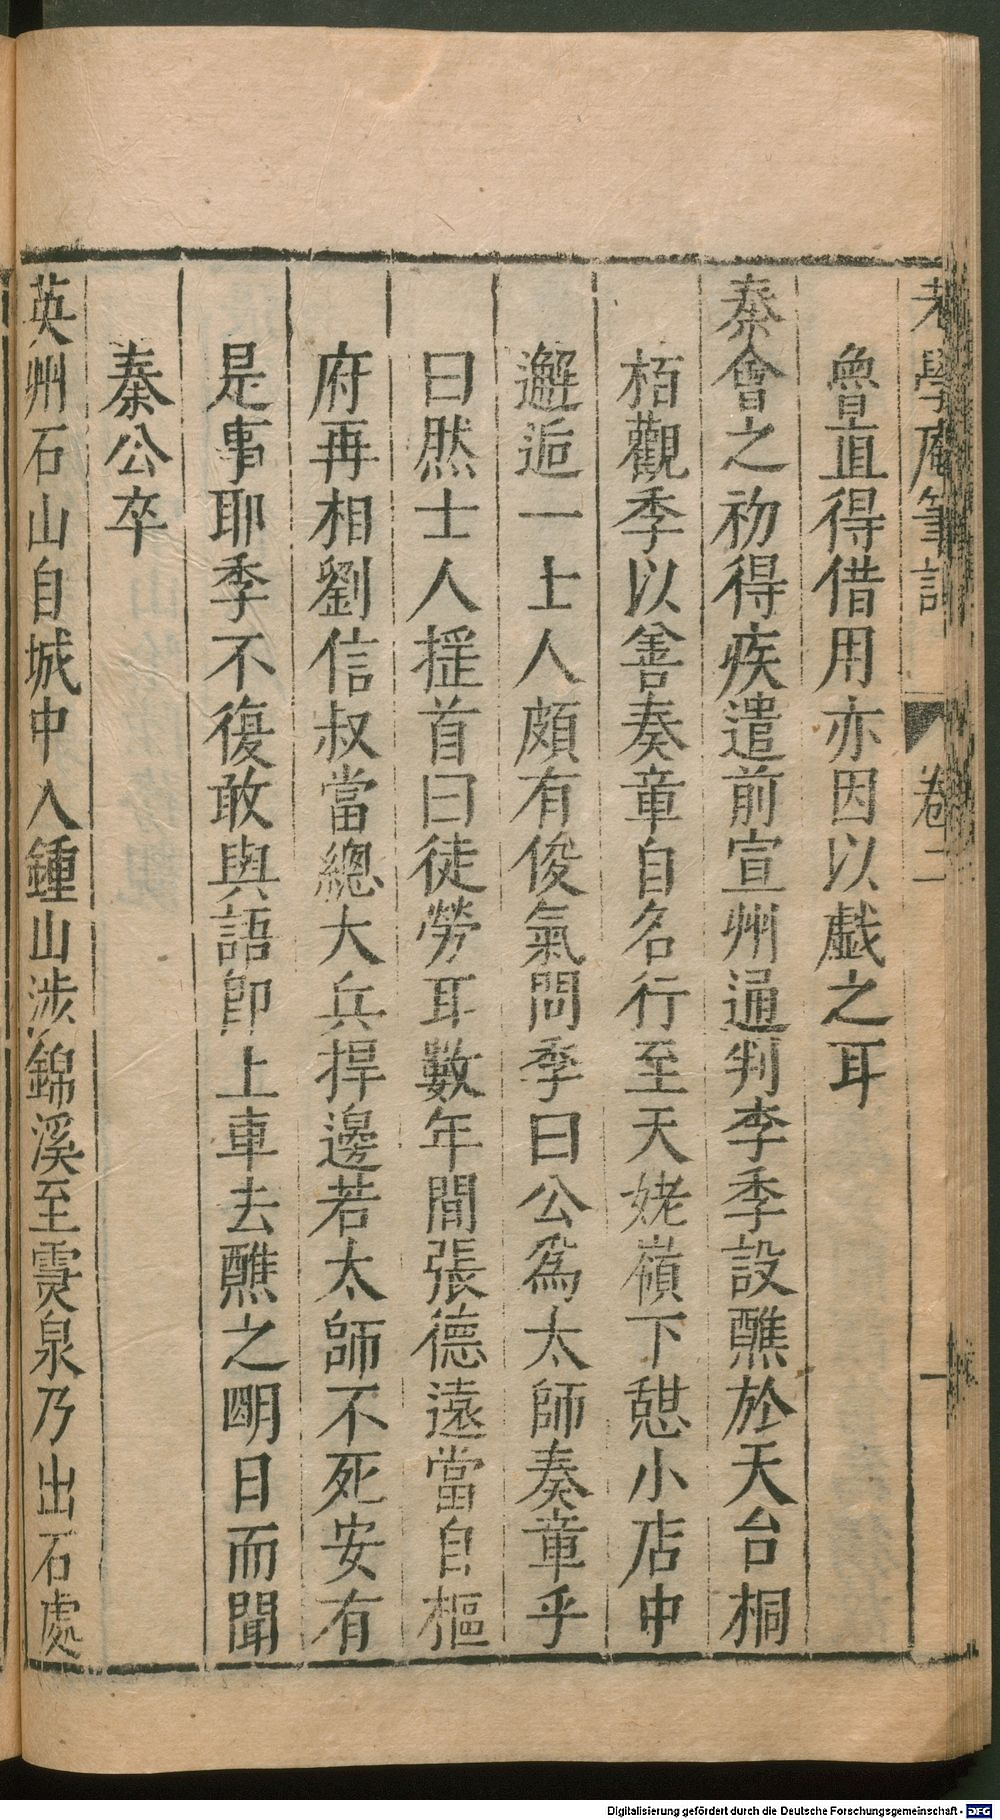 老學庵筆記 卷二 一
魯直得借用亦因以戲之耳
秦會之初得疾遣前宣州通判李季設醮於天台桐
栢觀季以善奏章自名行至天姥嶺下憇小店中
邂逅一士人頗有俊氣問季曰公為太師奏章乎
曰然士人揺首曰徒勞耳數年間張德遠當自樞
府再相劉信叔當總大兵捍邊若太師不死安有
是事耶季不復敢與語卽上車去醮之明日而聞
秦公卒
英州石山自城中入鍾山涉錦溪至霛泉乃出石處
Digitalisierung gefördert durch die Deutsche Forschungsgemeinschaft - DFG